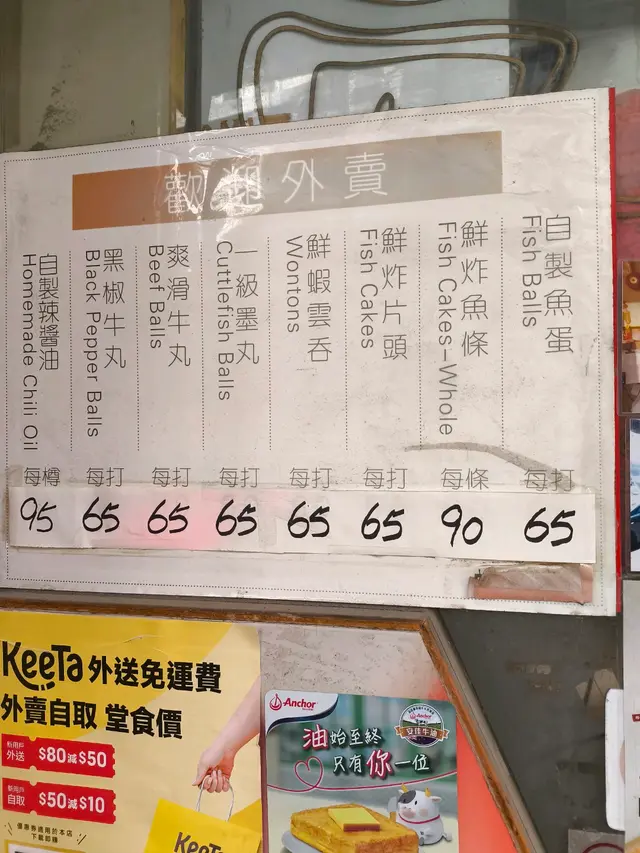 歡迎外賣
自製魚蛋
Fish Balls
每打
65
鮮炸魚條
Fish Cakes-Whole
每條
90
鮮炸片頭
Fish Cakes
每打
65
鮮蝦雲吞
Wontons
每打
65
一級墨丸
Cuttlefish Balls
每打
65
爽滑牛丸
Beef Balls
每打
65
黑椒牛丸
Black Pepper Balls
每打
65
自製辣醬油
Homemade Chili Oil
每樽
95
KeeTa 外送免運費
外賣自取 堂食價
新用戶
外送
$80減$50
新用戶
自取
$50減$10
優惠券適用於本店
下載即賺
KeeTa
Anchor
安佳牛油
油始至終
只有你一位